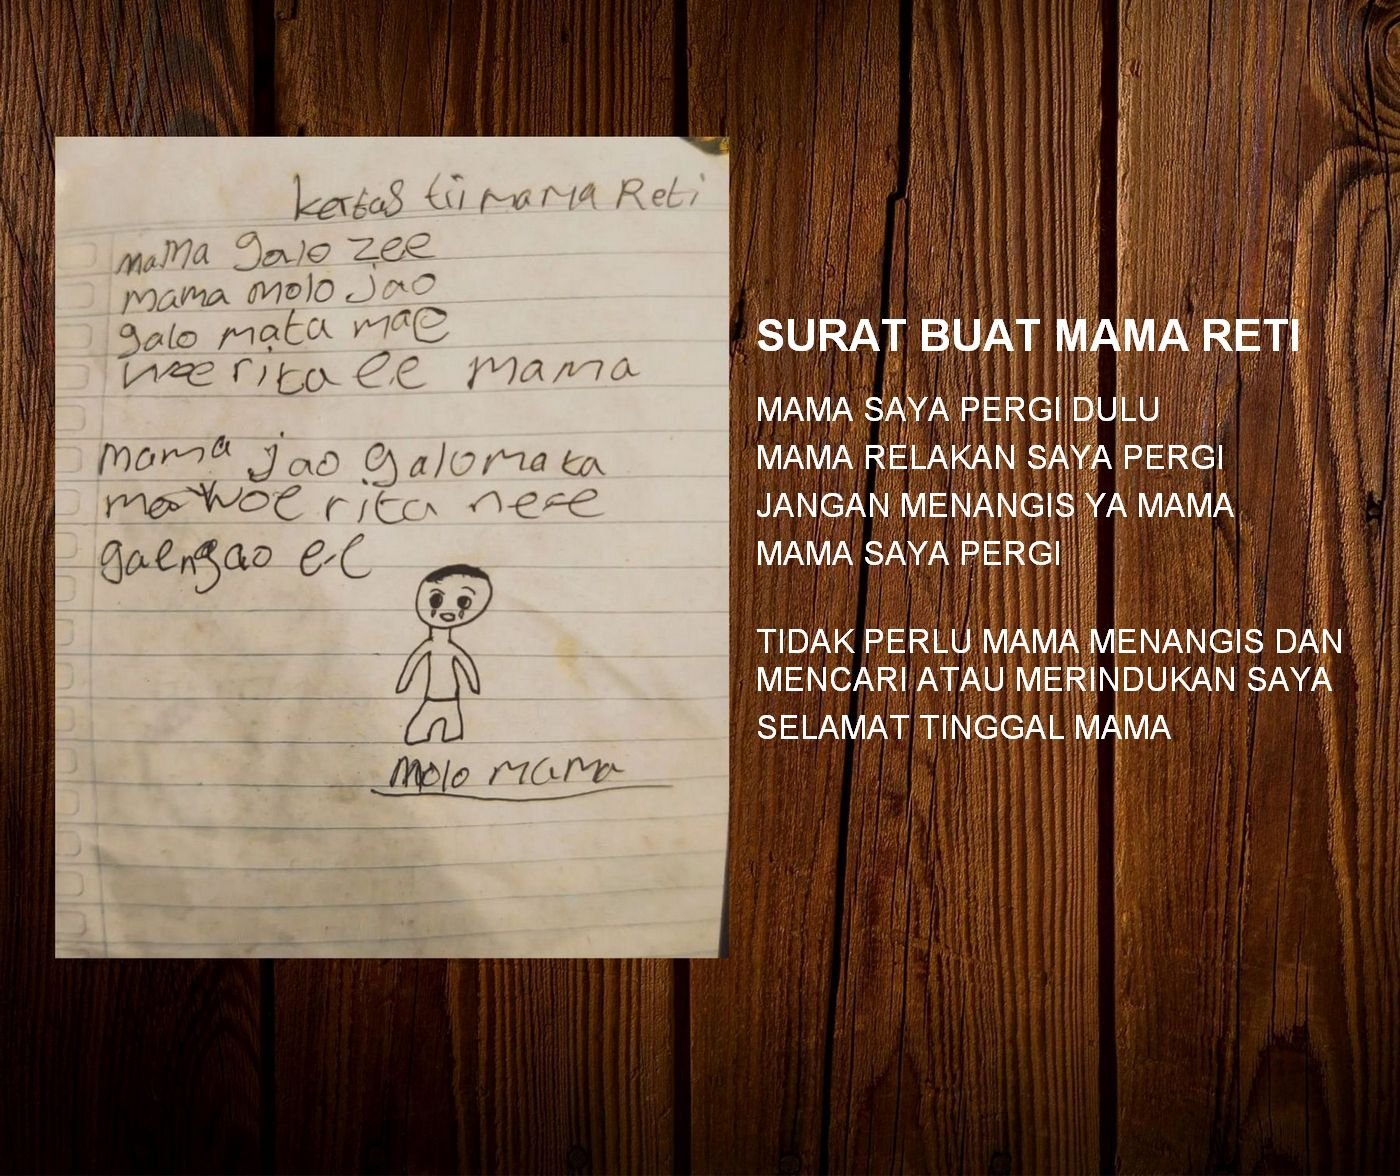 kertas tii mama Reti
mama galo zee
mama molo jao
galo mata mae
woe rita ee mama
mama jao galo mata
mae woe rita nee
gaengao ee
molo mama
SURAT BUAT MAMA RETI
MAMA SAYA PERGI DULU
MAMA RELAKAN SAYA PERGI
JANGAN MENANGIS YA MAMA
MAMA SAYA PERGI
TIDAK PERLU MAMA MENANGIS DAN
MENCARI ATAU MERINDUKAN SAYA
SELAMAT TINGGAL MAMA